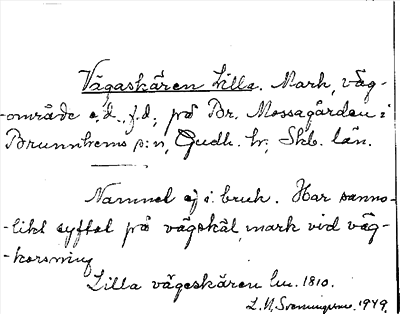 Vägaskären Lilla. Mark, väg-
-område e.d., f.d., på Br. Mossagården i
Brunnhems s:n, Gudh. hr, Skb. län.
Namnet ej i bruk. Har sanno-
-likt syftat på vägskäl, mark vid väg-
-korsning
Lilla vägeskären lm. 1810.
L. M. Svenningsson. 1949.